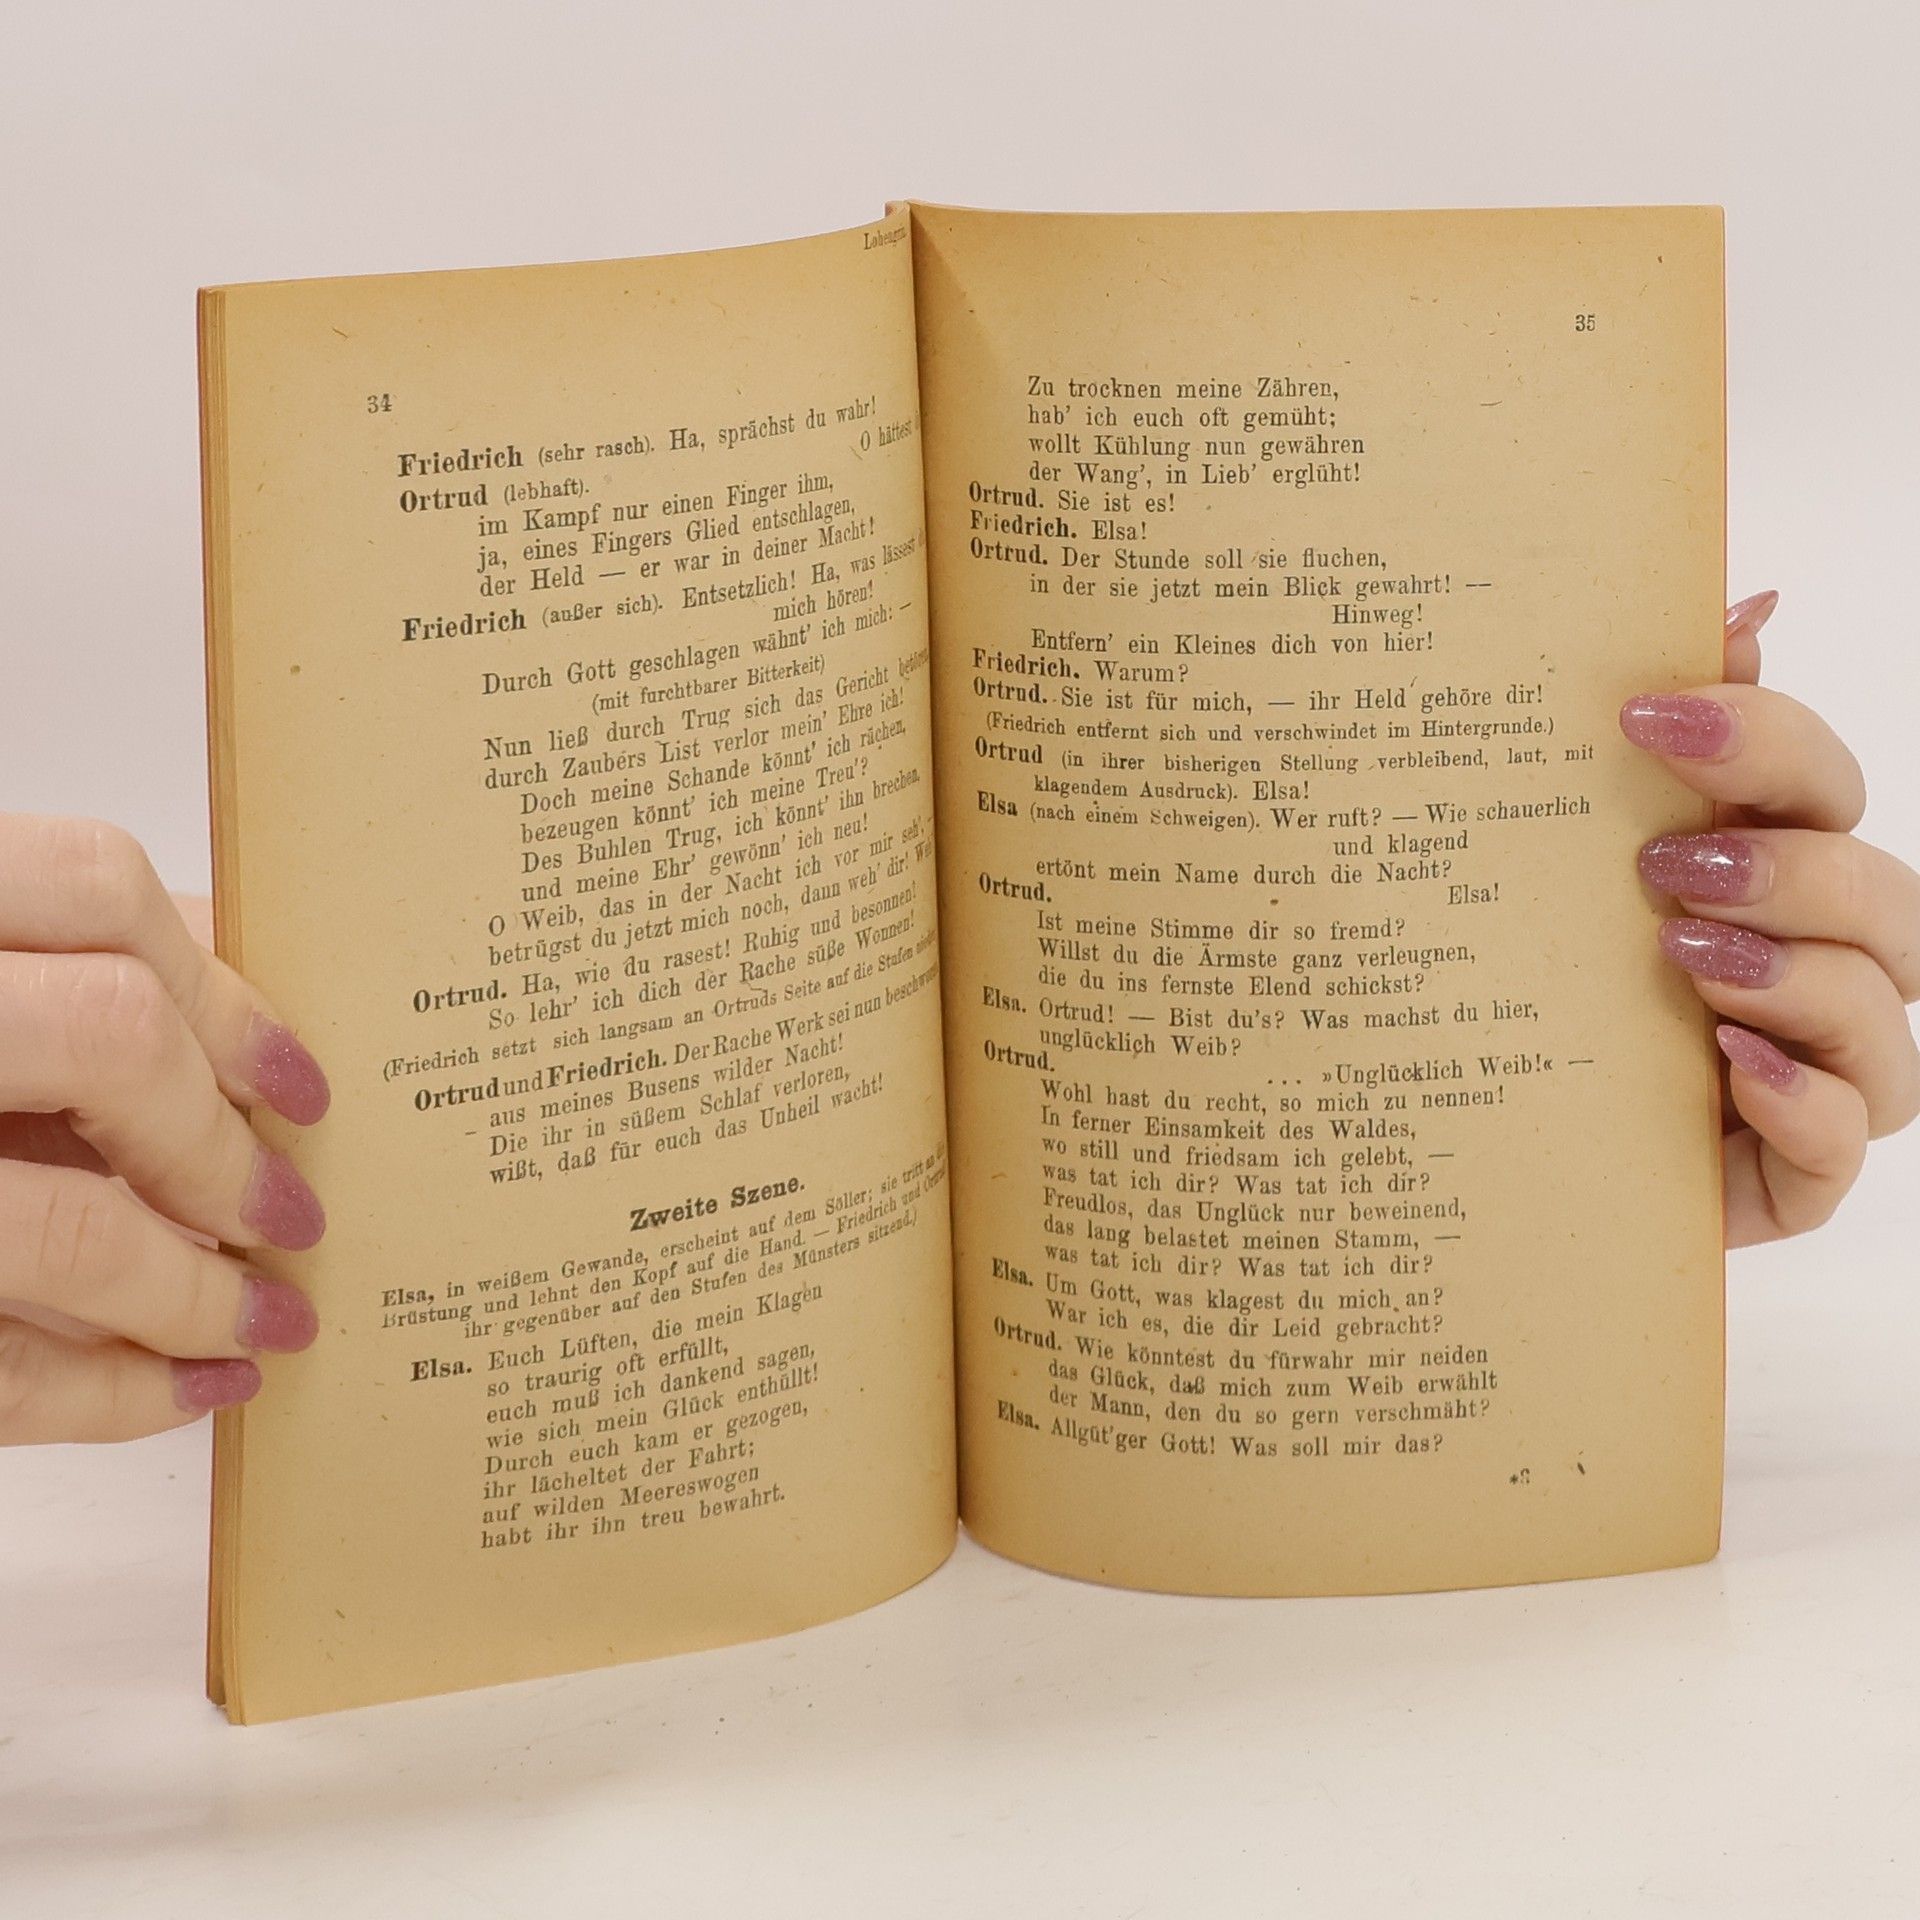 34
Friedrich (sehr rasch). Ha, sprächst du wahr!
Ortrud (lebhaft). O hättest
im Kampf nur einen Finger ihm,
ja, eines Fingers Glied entschlagen,
der Held — er war in deiner Macht!
Friedrich (außer sich). Entsetzlich! Ha, was lässest
mich hören!
Durch Gott geschlagen wähnt' ich mich: —
(mit furchtbarer Bitterkeit)
Nun ließ durch Trug sich das Gericht betören,
durch Zaubers List verlor mein' Ehre ich!
Doch meine Schande könnt' ich rächen,
bezeugen könnt' ich meine Treu'?
Des Buhlen Trug, ich könnt' ihn brechen,
und meine Ehr' gewönn' ich neu!
O Weib, das in der Nacht ich vor mir seh', —
betrügst du jetzt mich noch, dann weh' dir! Weh
Ortrud. Ha, wie du rasest! Ruhig und besonnen!
So lehr' ich dich der Rache süße Wonnen!
(Friedrich setzt sich langsam an Ortruds Seite auf die Stufen nieder
Ortrud und Friedrich. Der Rache Werk sei nun beschworen
– aus meines Busens wilder Nacht!
Die ihr in süßem Schlaf verloren,
wißt, daß für euch das Unheil wacht!
Zweite Szene.
Elsa, in weißem Gewande, erscheint auf dem Söller; sie tritt an die
Brüstung und lehnt den Kopf auf die Hand. — Friedrich und Ortrud
ihr gegenüber auf den Stufen des Münsters sitzend.)
Elsa. Euch Lüften, die mein Klagen
so traurig oft erfüllt,
euch muß ich dankend sagen,
wie sich mein Glück enthüllt!
Durch euch kam er gezogen,
ihr lächeltet der Fahrt;
auf wilden Meereswogen
habt ihr ihn treu bewahrt.
Lohengrin.
35
Zu trocknen meine Zähren,
hab' ich euch oft gemüht;
wollt Kühlung nun gewähren
der Wang', in Lieb' erglüht!
Ortrud. Sie ist es!
Friedrich. Elsa!
Ortrud. Der Stunde soll sie fluchen,
in der sie jetzt mein Blick gewahrt! —
Hinweg!
Entfern' ein Kleines dich von hier!
Friedrich. Warum?
Ortrud. Sie ist für mich, — ihr Held gehöre dir!
(Friedrich entfernt sich und verschwindet im Hintergrunde.)
Ortrud (in ihrer bisherigen Stellung verbleibend, laut, mit
klagendem Ausdruck). Elsa!
Elsa (nach einem Schweigen). Wer ruft? — Wie schauerlich
und klagend
ertönt mein Name durch die Nacht?
Ortrud. Elsa!
Ist meine Stimme dir so fremd?
Willst du die Ärmste ganz verleugnen,
die du ins fernste Elend schickst?
Elsa. Ortrud! — Bist du's? Was machst du hier,
unglücklich Weib?
Ortrud. ... »Unglücklich Weib!« —
Wohl hast du recht, so mich zu nennen!
In ferner Einsamkeit des Waldes,
wo still und friedsam ich gelebt, —
was tat ich dir? Was tat ich dir?
Freudlos, das Unglück nur beweinend,
das lang belastet meinen Stamm, —
was tat ich dir? Was tat ich dir?
Elsa. Um Gott, was klagest du mich an?
War ich es, die dir Leid gebracht?
Ortrud. Wie könntest du fürwahr mir neiden
das Glück, daß mich zum Weib erwählt
der Mann, den du so gern verschmäht?
Elsa. Allgüt'ger Gott! Was soll mir das?